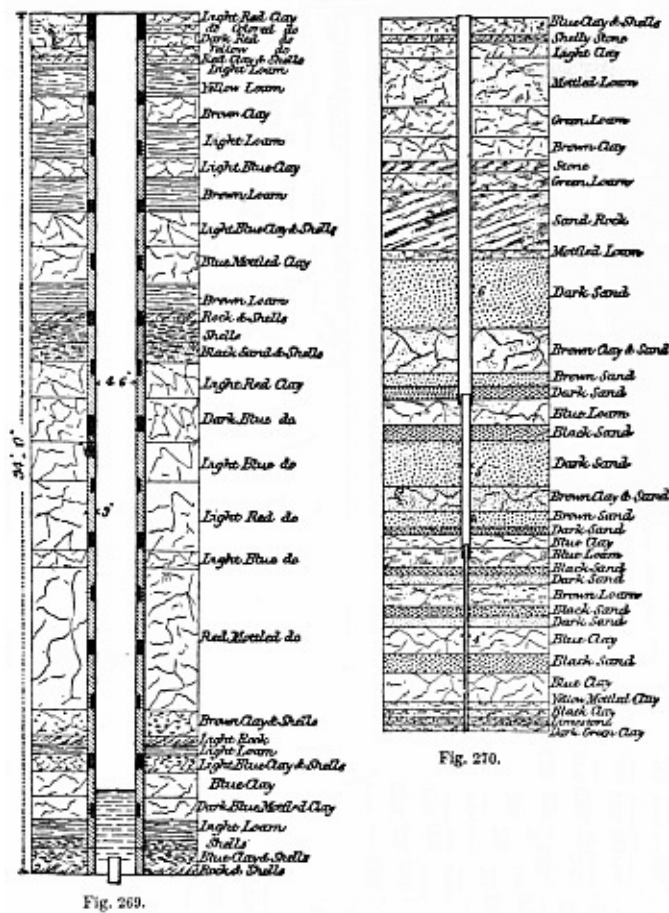 Light Red Clay
do Colored do
Dark Red do
Yellow do
Red Clay & Shells
Light Loam
Yellow Loam
Brown Clay
Light Loam
Light Blue Clay
Brown Loam
Light Blue Clay & Shells
Blue Mottled Clay
Brown Loam
Rock & Shells
Shells
Black Sand & Shells
4' 6"
Light Red Clay
Dark Blue do
Light Blue do
9"
Light Red do
Light Blue do
Red Mottled do
Brown Clay & Shells
Light Rock
Light Loam
Light Blue Clay & Shells
Blue Clay
Dark Blue Mottled Clay
Light Loam
Shells
Blue Clay & Shells
Rock & Shells
Fig. 269.
Blue Clay & Shells
Shelly Stone
Light Clay
Mottled Loam
Green Loam
Brown Clay
Stone
Green Loam
Sand Rock
Mottled Loam
6
Dark Sand
Brown Clay & Sand
Brown Sand
Dark Sand
Blue Loam
Black Sand
Dark Sand
Brown Clay & Sand
Brown Sand
Dark Sand
Blue Clay
Blue Loam
Black Sand
Dark Sand
Brown Loam
Black Sand
Dark Sand
4
Blue Clay
Black Sand
Blue Clay
Yellow Mottled Clay
Black Clay
Limestone
Dark Green Clay
Fig. 270.